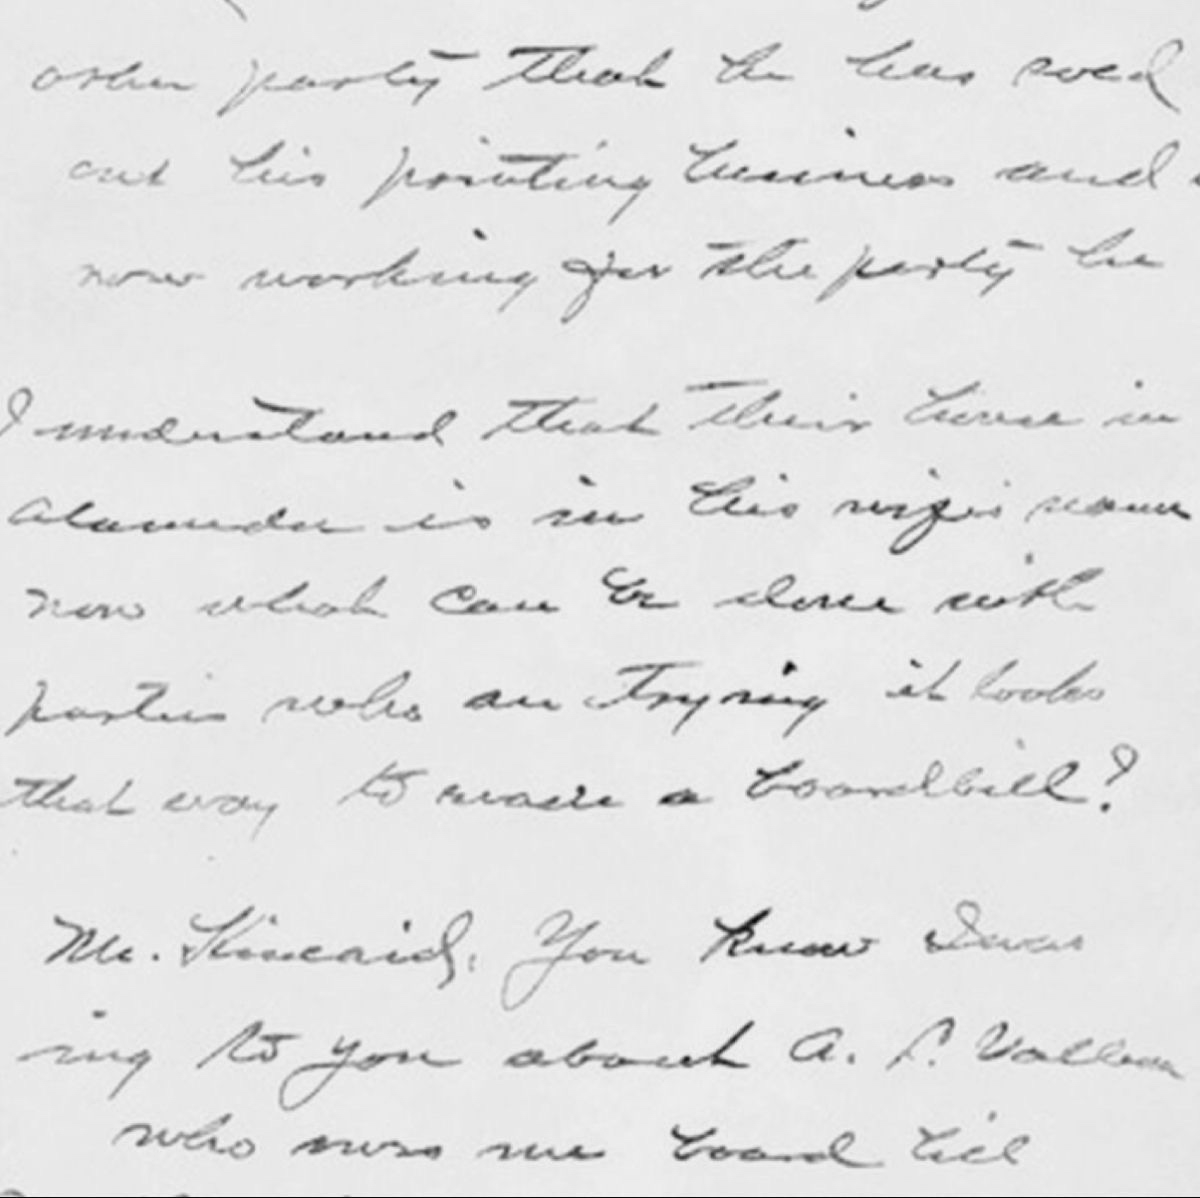 other party that he has sold
out his printing business and
now working for the party he
I understand that their house in
Alameda is in his wife's name
now what can be done with
parties who are trying it looks
that way to evade a boardbill?
Mr. Kincaid, You know I was
ing to you about A. P.
who owes me board bill